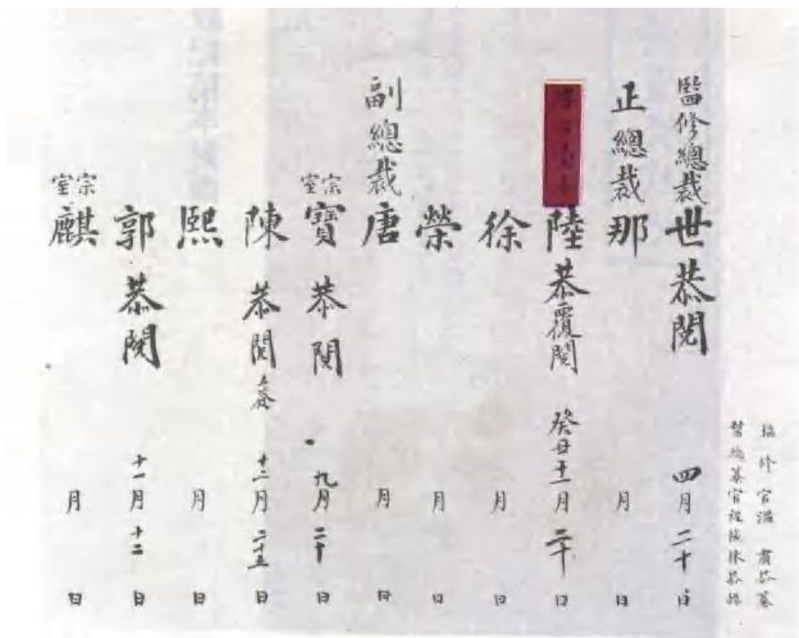 協修官溫肅恭纂
幫總纂官程棫林恭
監修總裁世恭閱 四月二十日
正總裁那 月 日
陸恭覆閱 癸丑十一月二十日
徐 月 日
榮 月 日
副總裁唐 月 日
宗室寶恭閱 九月二十日
陳恭閱 十二月二十五日
熙 月 日
郭恭閱 十一月十二日
宗室麒 月 日